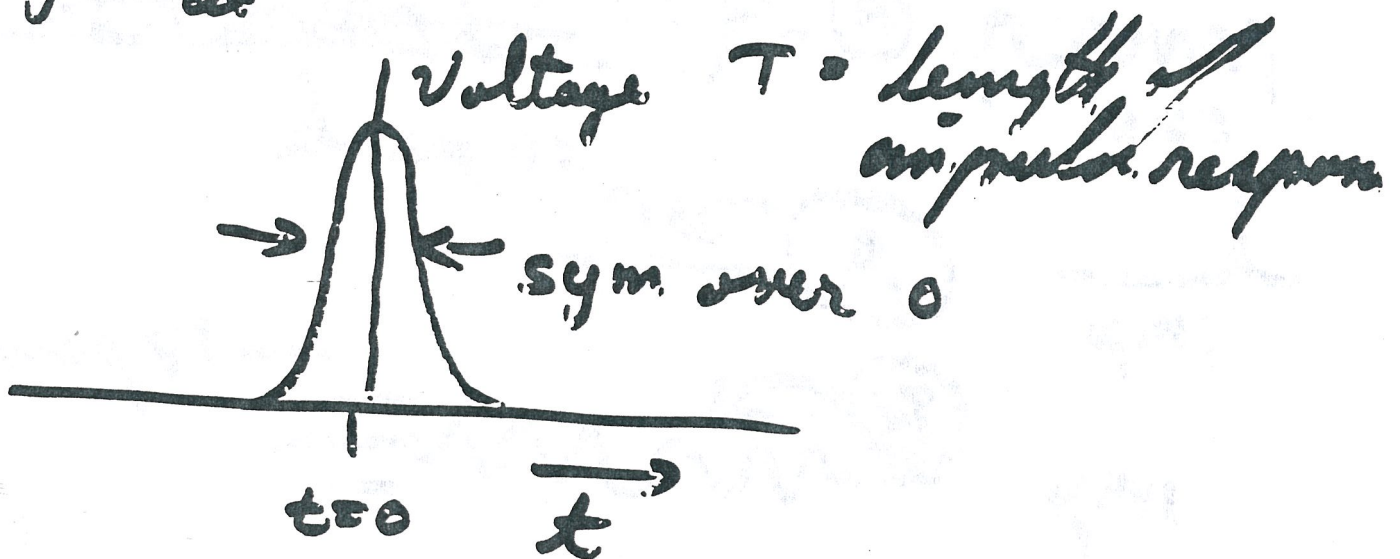 Voltage T = Length of
impulse respon
sym. over 0
t=0 t